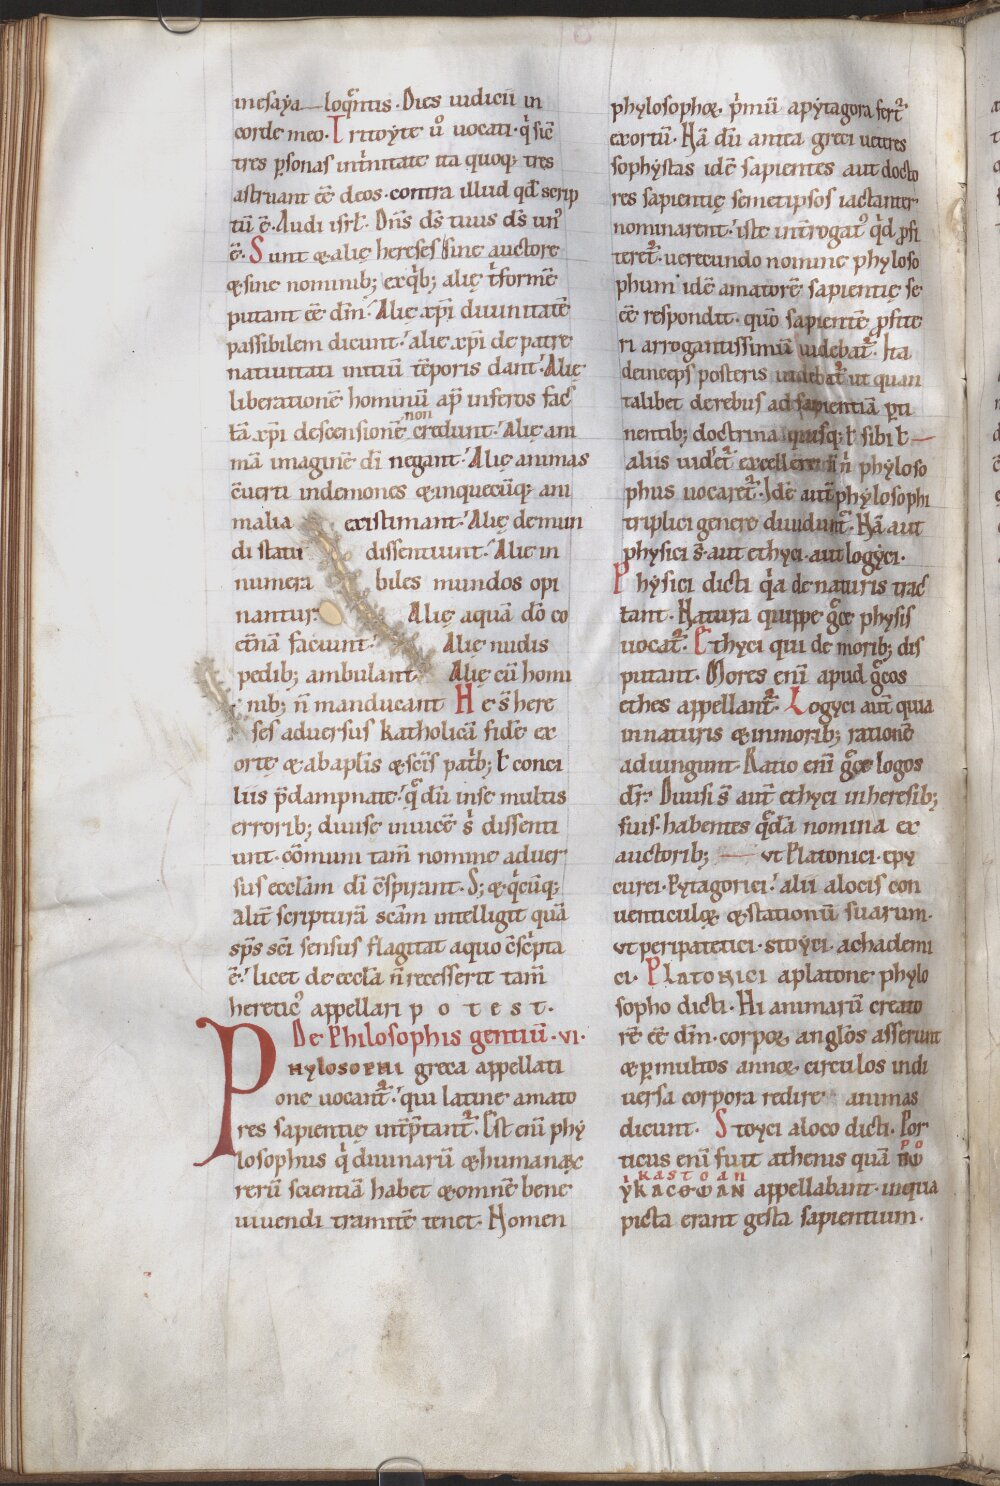 inesaẏa loq̄ntis. Dies iudicii in
corde meo. Tritoẏte ů uocati. q̓ sic̄
tres p̱sonas int̓nitate ita quoq; tres
astruant ee̅ deos. contra illud qđ scrip
tū ē. Audi isrł. Dn̄s ds̄ tuus ds̄ un᾽
ē. Sunt & alię hereses sine auctore
& sine nominib; exq̓b; alię t̓forme̅
putant ee̅ dm̄. Alię xp̄i diuinitate̅
passibilem dicunt. alię xp̄i de patre
natiuitati initiū te̅poris dant. Alię
liberatione̅ hominū ap̄ inferos fac̄
ta̅ xp̄i descensione̅ non credunt. Alię ani
ma̅ imagine̅ di̅ negant. Alię animas
c̄uerti indemones & inquecūq; ani
malia existimant. Alię demun
di statu dissentiunt. Alię in
numera biles mundos opi
nantur. Alię aqua̅ do̅ co
et̓na̅ faciunt. Alię nudis
pedib; ambulant. Alię cu̅ homi
nib; n̄ manducant He s̄ here
ses aduersus katholica̅ fide̅ ex
ortę & abapłis & sc̄is pat̓b; ł conci
liis p̄dampnatę. q̄ du̅ inse multis
errorib; diuise inuice̅ s̓ dissenti
unt. co̅muni tam̄ nomine aduer
sus eccłam di̅ c̄spirant. S; & q̓cu̅q;
alit̄ scriptura̅ sca̅m intelligit qua̅
sp̄s sc̄i sensus flagitat aquo c̄sc̓pta
ē. licet de eccła n̄ recesserit tam̄
heretic᾽ appellari potest.
De Philosophis gentiu̅. VI.
Phylosophi greca appellati
one uocant᷑. qui latine amato
res sapientię int̓p̄tant᷑. Est eni̅ phẏ
losophus q̓ diuinaru̅ & humanaꝝ
reru̅ scientia̅ habet & omne̅ bene
uiuendi tramite̅ tenet. Nomen
phylosophoꝝ p̓mu̅ apẏtagora fert᷑
exortu̅. Na̅ du̅ antea greci ueteres
sophẏstas ide̅ sapientes aut docto
res sapientię semetipsos iactanter
nominarent. iste int̓rogat᾽ q̓d ꝓfi
teret᷑. uerecundo nomine phyloso
phum ide̅ amatore̅ sapientię se
ee̅ respondit. quo̅ sapiente̅ ꝓfite
ri arrogantissimu̅ uidebat᷑. Ita
deinceps posteris uidebat᷑ ut quan
talibet derebus ad sapientia̅ ꝑti
nentib; doctrina quisq; ł sibi ł
aliis uidet᷑ excelleret n̄ phyloso
phus uocaret᷑. Ide̅ aut̄ phylosophi
triplici genere diuidunt᷑. Na̅ aut
physici s̄. aut ethyci. aut logẏci.
Phẏsici dicti q̓a de naturis trac
tant. Natura quippe g̓ce physis
uocat᷑. Ethyci qui de morib; dis
putant. Mores eni̅ apud g̓cos
ethes appellant᷑. Logyci aut̄ quia
in naturis & inmorib; ratione̅
adiungunt. Ratio eni̅ g̓ce logos
dr̄. Diuisi s̄ aut̄ ethyci inheresib;
suis. habentes q̄da̅ nomina ex
auctorib; ut Platonici. epy
curei. Pytagorici. alii alocis con
uenticuloꝝ & stationu̅ suarum.
ut peripatetici. stoẏci. achademi
ci. Platonici aplatone phylo
sopho dicti. Hi animaru̅ creato
re̅ ee̅ dm̄. corpoꝝ anglos asserunt
& ꝑmultos annoꝝ circulos indi
uersa corpora redire animas
dicunt. Stoyci aloco dicti. Por
ticus eni̅ fuit athenis qua̅ πω
po
ikastoan
ẏΚΑCΘωΑΝ appellabant. inqua
picta erant gesta sapientium.